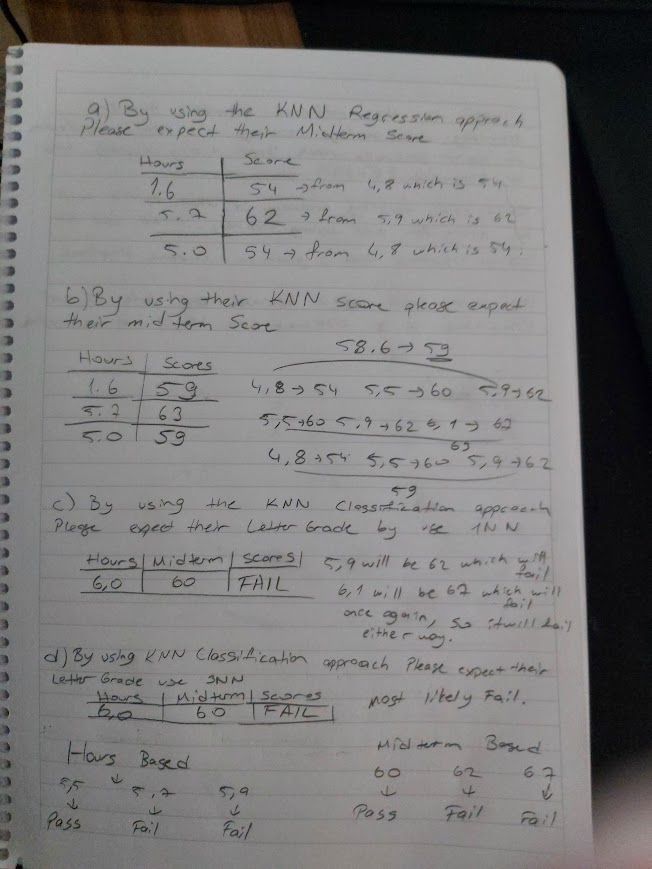 a) By using the KNN Regression approach
Please expect their Midterm Score
Hours Score
1.6 54 → from 4,8 which is 54
5.7 62 → from 5,9 which is 62
5.0 54 → from 4,8 which is 54.
b) By using their KNN score please expect
their mid term Score
58.6 → 59
Hours Scores
1.6 59 4,8 → 54 5,5 → 60 5,9 → 62
5.7 63 5,5 → 60 5,9 → 62 6,1 → 67
63
5.0 59 4,8 → 54 5,5 → 60 5,9 → 62
59
c) By using the KNN Classification approach
Please expect their Letter Grade by use 1NN
Hours Midterm Scores
6,0 60 FAIL
5,9 will be 62 which will
fail
6,1 will be 67 which will
fail
once again, so it will fail
either way.
d) By using KNN Classification approach Please expect their
Letter Grade use 3NN
Hours Midterm Scores
6,0 60 FAIL
most likely Fail.
Hours Based
5,5 → 5,7 5,9
↓ ↓ ↓
Pass Fail Fail
Midterm Based
60 62 67
↓ ↓ ↓
Pass Fail Fail